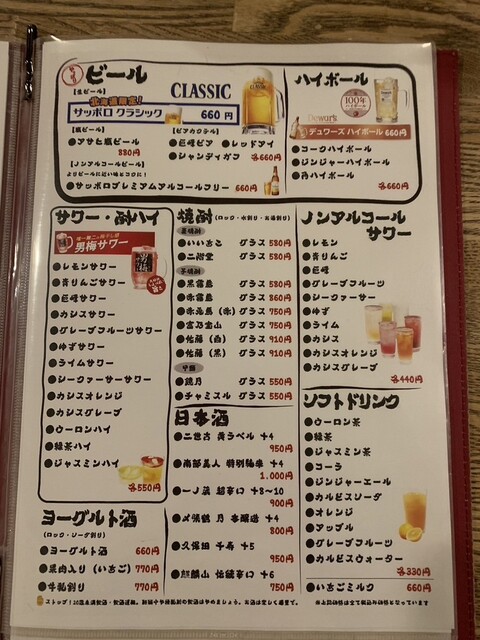 ビール
【生ビール】
北海道限定!
サッポロ クラシック 660円
CLASSIC
【瓶ビール】
●アサヒ瓶ビール
880円
【ノンアルコールビール】
よりビールに近い味とコクに!
●サッポロプレミアムアルコールフリー 660円
【ビアカクテル】
●巨峰ビア ●レッドアイ
●シャンディガフ 各660円
ハイボール
Dewar's
100年
デュワーズ ハイボール 660円
●コークハイボール
●ジンジャーハイボール
●角ハイボール
各660円
サワー・酎ハイ
男梅サワー
●レモンサワー
●青りんごサワー
●巨峰サワー
●カシスサワー
●グレープフルーツサワー
●ゆずサワー
●ライムサワー
●シークァーサーサワー
●カシスオレンジ
●カシスグレープ
●ウーロンハイ
●緑茶ハイ
●ジャスミンハイ
各550円
ヨーグルト酒
(ロック・ソーダ割り)
●ヨーグルト酒 660円
●果肉入り(いちご) 770円
●牛乳割り 770円
焼酎 (ロック・水割り・お湯割り)
麦焼酎
●いいちこ グラス 580円
●二階堂 グラス 580円
芋焼酎
●黒霧島 グラス 580円
●赤霧島 グラス 860円
●赤兎馬(赤) グラス 750円
●富乃宝山 グラス 750円
●佐藤(白) グラス 910円
●佐藤(黒) グラス 910円
甲類
●鏡月 グラス 550円
●チャミスル グラス 550円
日本酒
●二世古 黄ラベル +4
950円
●南部美人 特別純米 +4
1.000円
●一ノ蔵 超辛口 +8～10
900円
●〆張鶴 月 本醸造 +4
800円
●久保田 千寿 +5
950円
●麒麟山 伝統辛口 +6
750円
ノンアルコール
サワー
●レモン
●青りんご
●巨峰
●グレープフルーツ
●シークァーサー
●ゆず
●ライム
●カシス
●カシスオレンジ
●カシスグレープ
各440円
ソフトドリンク
●ウーロン茶
●緑茶
●ジャスミン茶
●コーラ
●ジンジャーエール
●カルピスソーダ
●オレンジ
●アップル
●グレープフルーツ
●カルピスウォーター
各330円
●いちごミルク 660円
ストップ!20歳未満飲酒・飲酒運転。